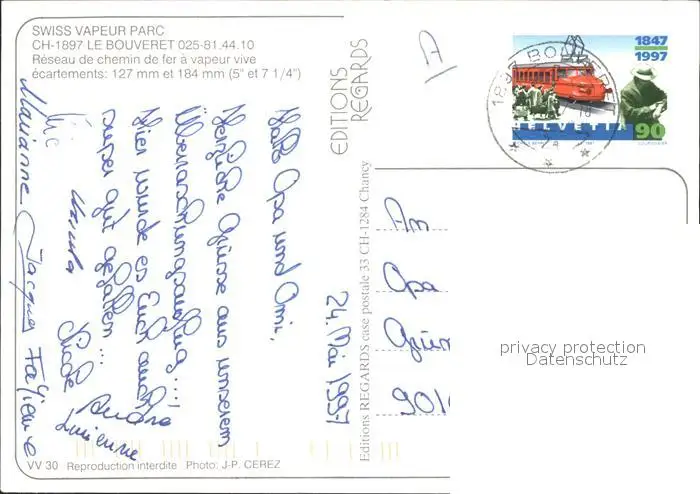 SWISS VAPEUR PARC
CH-1897 LE BOUVERET 025-81.44.10
Réseau de chemin de fer à vapeur vive
écartements: 127 mm et 184 mm (5" et 7 1/4")
24. Mai 1997
Hallo Opa und Omi,
Herzliche Grüsse aus unserem
Überraschungsausflug...,
Hier würde es Euch auch
super gut gefallen...
Marianne Jacques Fabienne
Lucienne
EDITIONS
REGARDS
Editions REGARDS case postale 33 CH-1284 Chancy
A
1847
1997
1897 BOUVERET
HELVETIA 90
An
Opa
901
privacy protection
Datenschutz
VV 30 Reproduction interdite Photo: J-P. CEREZ